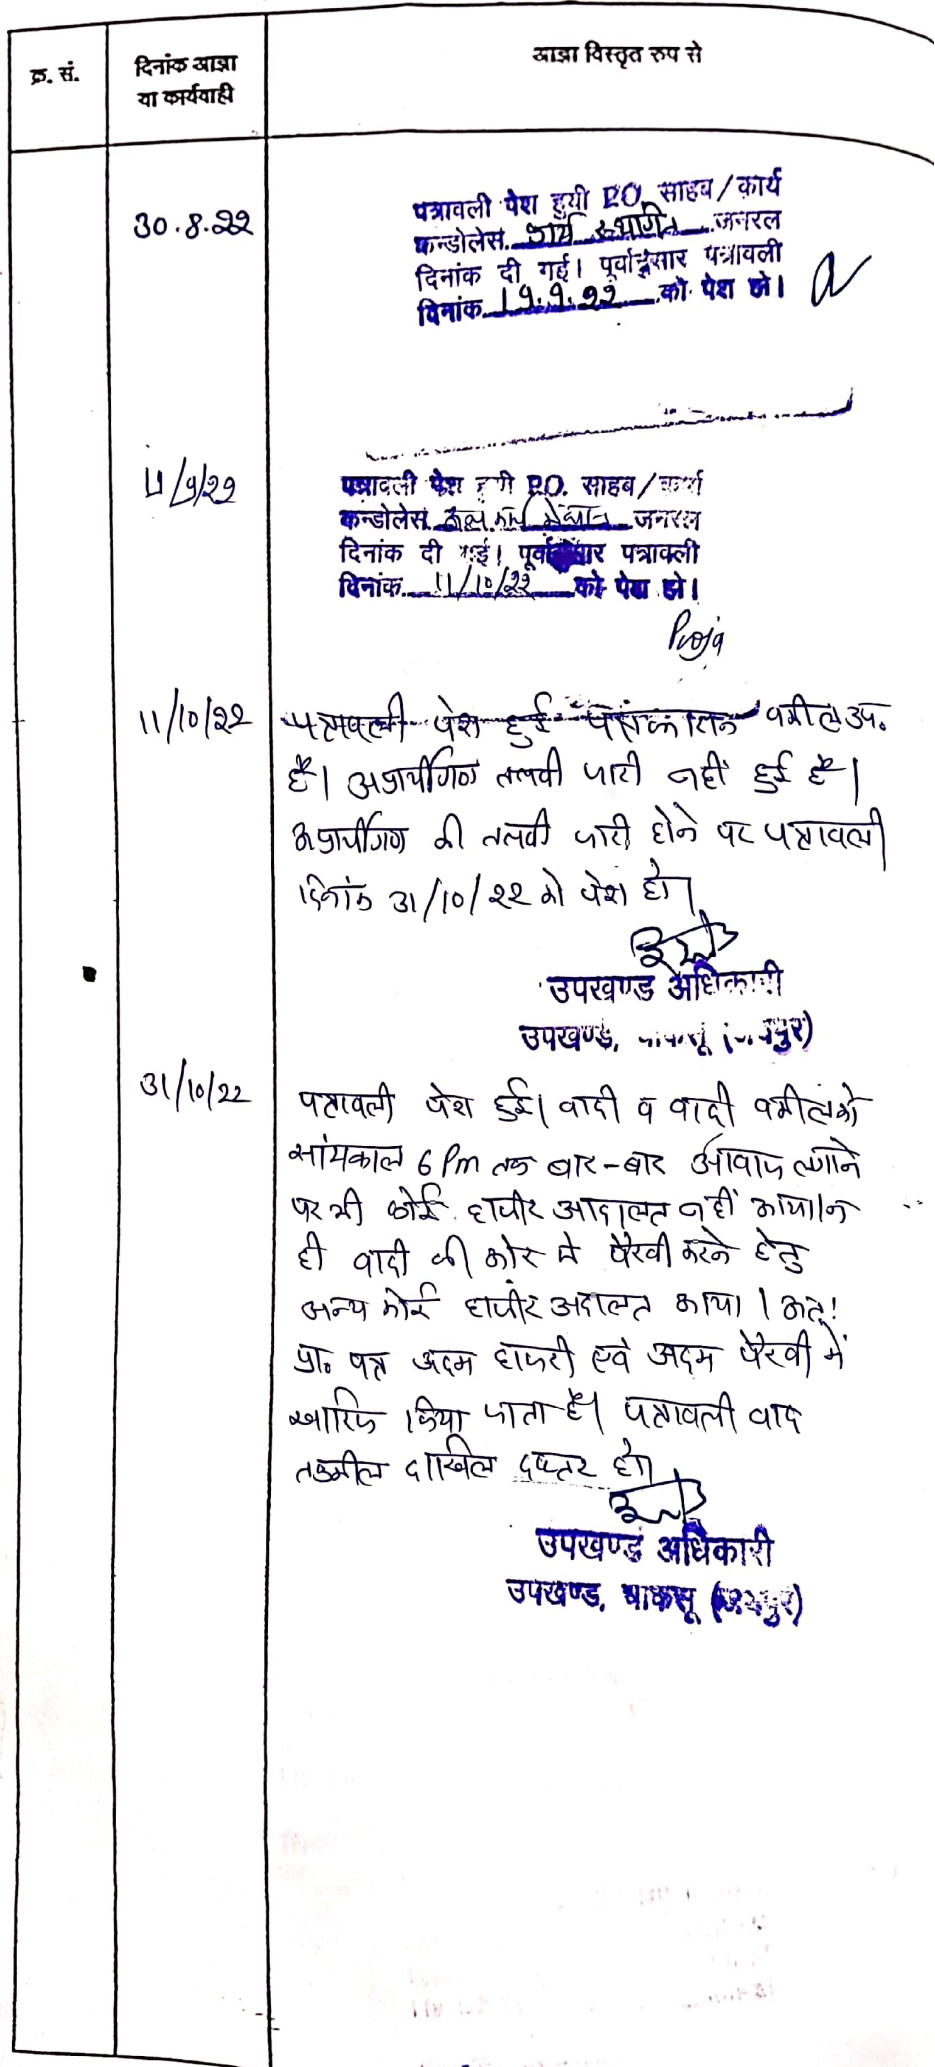 क्र. सं.
दिनांक आज्ञा
या कार्यवाही
आज्ञा विस्तृत रुप से
30.8.22
पत्रावली पेश हुयी P.O. साहब/कार्य
कन्डोलेस. कार्य स्थगित जनरल
दिनांक दी गई। पूर्वानुसार पत्रावली
दिनांक 19.9.22 को पेश हो।
/9/22
पत्रावली पेश हुयी P.O. साहब/कार्य
कन्डोलेस. जनरल
दिनांक दी गई। पूर्वानुसार पत्रावली
दिनांक 11/10/22 को पेश हो।
Pooja
11/10/22
पत्रावली पेश हुई वकील उप.
है। अप्रार्थीगण तलवी जारी नहीं हुई है।
अप्रार्थीगण की तलवी जारी होने पर पत्रावली
दिनांक 31/10/22 को पेश हो।
उपखण्ड अधिकारी
उपखण्ड, चाकसू (जयपुर)
31/10/22
पत्रावली पेश हुई। वादी व वादी वकील को
सांयकाल 6 Pm तक बार-बार आवाज लगाने
पर भी कोई हाजीर आदालत नहीं आया। न
ही वादी की ओर से पैरवी करने हेतु
अन्य कोई हाजीर अदालत आया। अतः
प्रा. पत्र अदम हाजरी एवं अदम पैरवी में
खारिज किया जाता है। पत्रावली वाद
तकमील दाखिल दफ्तर हो।
उपखण्ड अधिकारी
उपखण्ड, चाकसू (जयपुर)